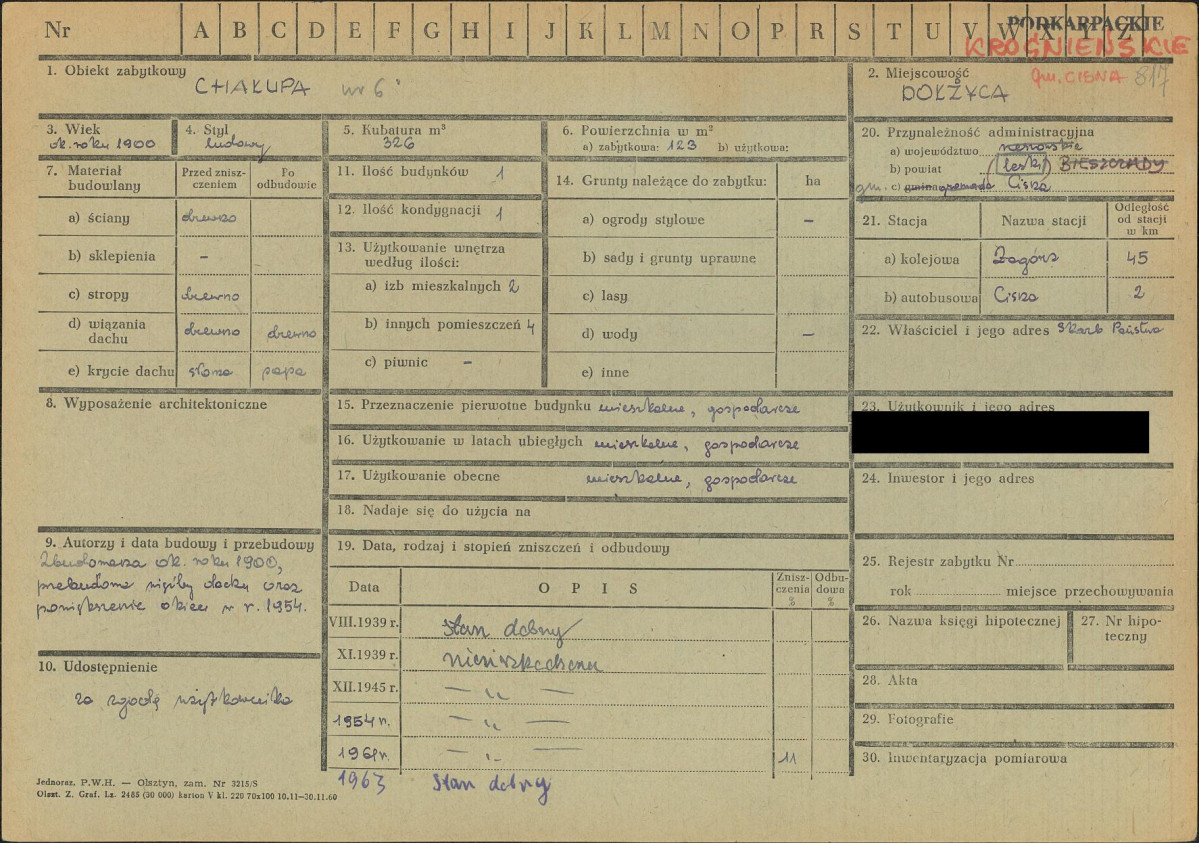 Nr A B C D E F G H I J K L M N O P R S T U V W X Y Z
PODKARPACKIE
KROŚNIEŃSKIE
gm. CISNA 817
1. Obiekt zabytkowy
CHAŁUPA nr 6
2. Miejscowość
DOŁŻYCA
3. Wiek
ok. roku 1900
4. Styl
ludowy
5. Kubatura m³
326
6. Powierzchnia w m²
a) zabytkowa: 123 b) użytkowa:
7. Materiał budowlany
Przed zniszczeniem
Po odbudowie
a) ściany drewno
b) sklepienia –
c) stropy drewno
d) wiązania dachu drewno drewno
e) krycie dachu słoma papa
8. Wyposażenie architektoniczne
9. Autorzy i data budowy i przebudowy
Zbudowana ok. roku 1900,
przebudowa więźby dachu oraz
powiększenie okien w r. 1954.
10. Udostępnienie
za zgodą użytkownika
11. Ilość budynków 1
12. Ilość kondygnacji 1
13. Użytkowanie wnętrza
według ilości:
a) izb mieszkalnych 2
b) innych pomieszczeń 4
c) piwnic –
14. Grunty należące do zabytku: ha
a) ogrody stylowe –
b) sady i grunty uprawne
c) lasy
d) wody –
e) inne
15. Przeznaczenie pierwotne budynku mieszkalne, gospodarcze
16. Użytkowanie w latach ubiegłych mieszkalne, gospodarcze
17. Użytkowanie obecne mieszkalne, gospodarcze
18. Nadaje się do użycia na
19. Data, rodzaj i stopień zniszczeń i odbudowy
Data OPIS Zniszczenia % Odbudowa %
VIII.1939 r. stan dobry
XI.1939 r. nieuszkodzona
XII.1945 r. — „ —
1954 r. — „ —
1961 r. — „ — 11
1963 stan dobry
20. Przynależność administracyjna
a) województwo rzeszowskie
b) powiat leski BIESZCZADY
gm. c) gmina gromada Cisna
21. Stacja Nazwa stacji Odległość od stacji w km
a) kolejowa Zagórz 45
b) autobusowa Cisna 2
22. Właściciel i jego adres Skarb Państwa
23. Użytkownik i jego adres
24. Inwestor i jego adres
25. Rejestr zabytku Nr
rok miejsce przechowywania
26. Nazwa księgi hipotecznej
27. Nr hipoteczny
28. Akta
29. Fotografie
30. Inwentaryzacja pomiarowa
Jednoraz. P.W.H. — Olsztyn, zam. Nr 3215/S
Olszt. Z. Graf. Lz. 2485 (30 000) karton V kl. 220 70x100 10.11—30.11.60